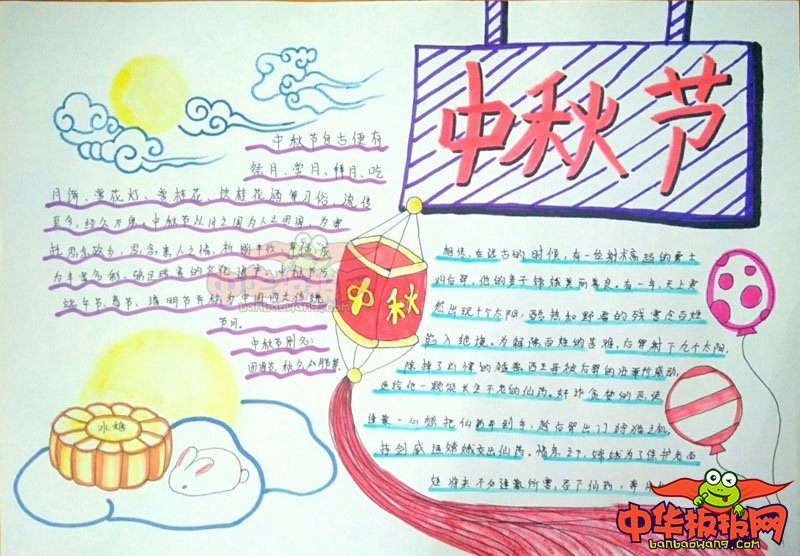 中秋节
中秋节自古便有
祭月、赏月、拜月、吃
月饼、赏花灯、赏桂花、饮桂花酒等习俗,流传
至今,经久不息。中秋节以月之圆为人之团圆,为寄
托思念故乡,思念亲人之情,祈盼丰收、幸福,成
为丰富多彩、弥足珍贵的文化遗产。中秋节与
端午节、春节、清明节并称为中国四大传统
节日。
中秋节别名:
团圆节、秋夕、八月
中秋
冰糖
相传,在远古的时候,有一位射术高强的勇士
叫后羿,他的妻子嫦娥美丽善良。有一年,天上突
然出现十个太阳,酷热和野兽的残害令百姓
陷入绝境。为解除百姓的苦难,后羿射下九个太阳,
除掉了凶悍的猛兽。西王母被后羿的
送给他一颗能长生不老的仙药。奸诈贪婪的恶徒
逢蒙一心想把仙药弄到手,趁后羿出门狩猎之机,
持剑威逼嫦娥交出仙药。情急之下,嫦娥为了保护老百
姓将来不为逢蒙所害,吞下仙药,奔月
中华板报网
banbaowang.com
中华板报网
banbaowang.com